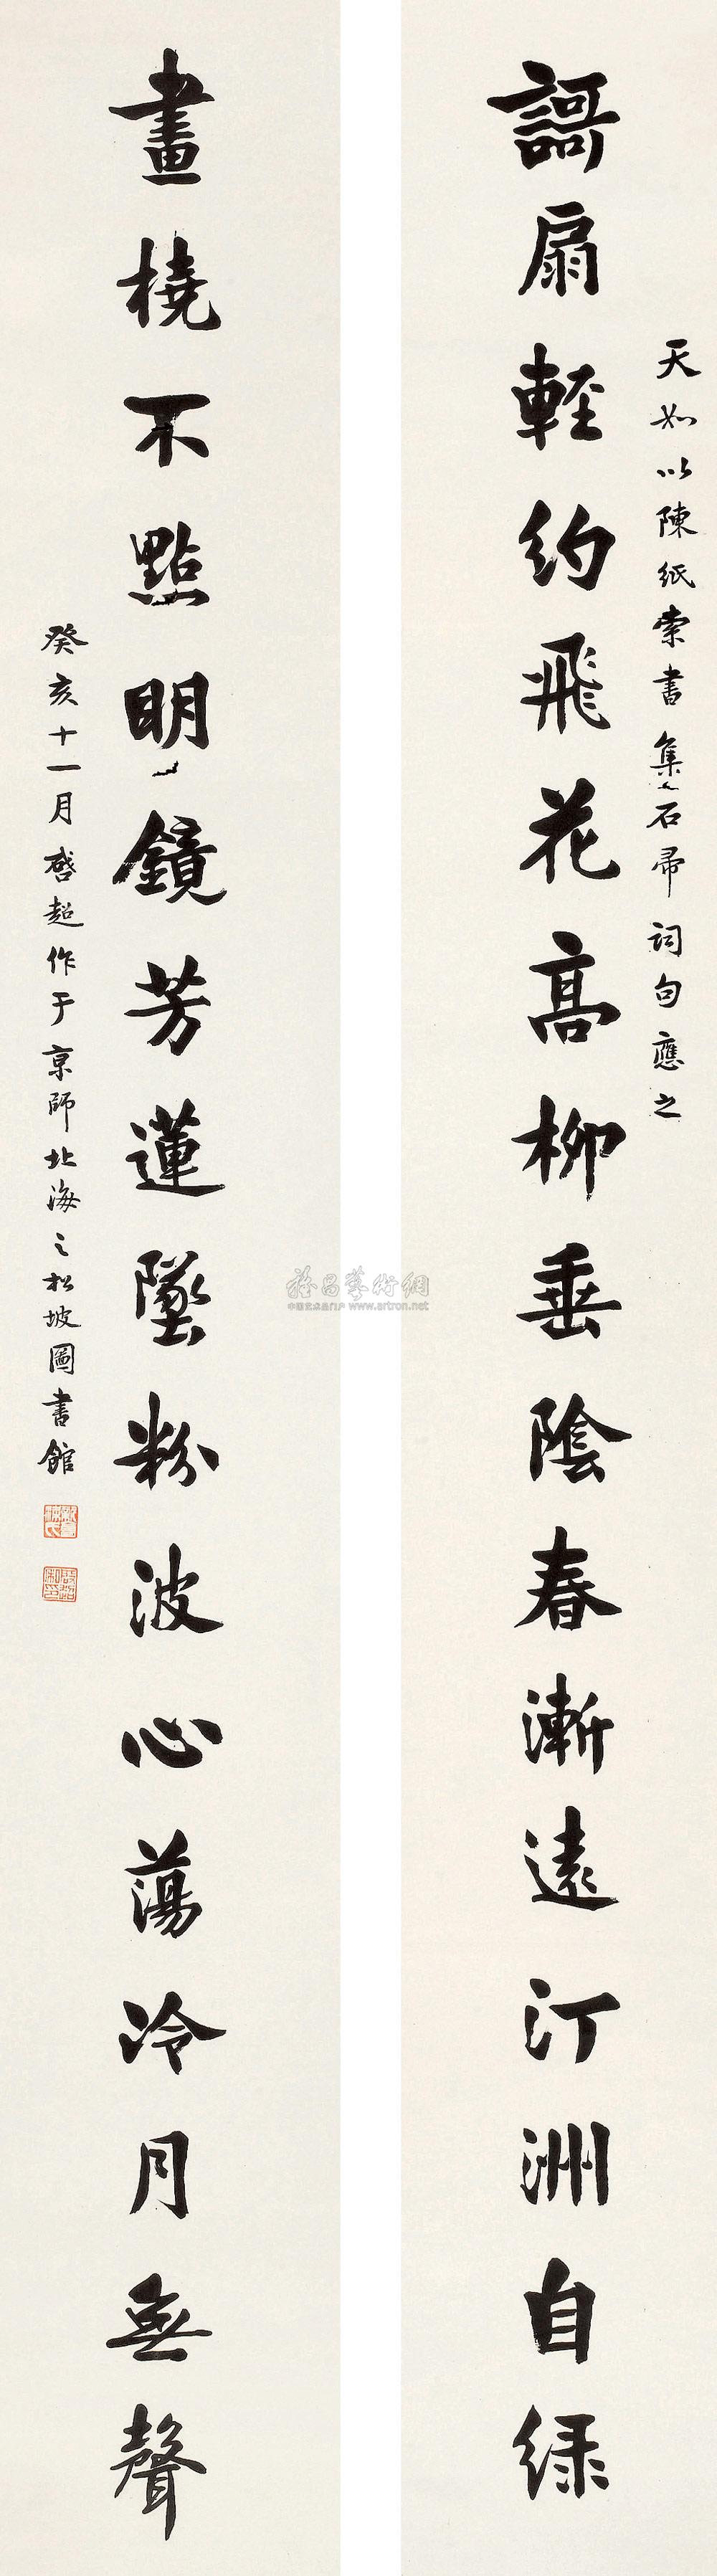 天如以陳紙索書集石帚詞句應之
謌扇輕約飛花高柳垂陰春漸遠汀洲自緑
畫橈不點明鏡芳蓮墜粉波心蕩冷月無聲
癸亥十一月啓超作于亰師北海之松坡圖書館
雅昌藝術網
中国艺术品门户 www.artron.net